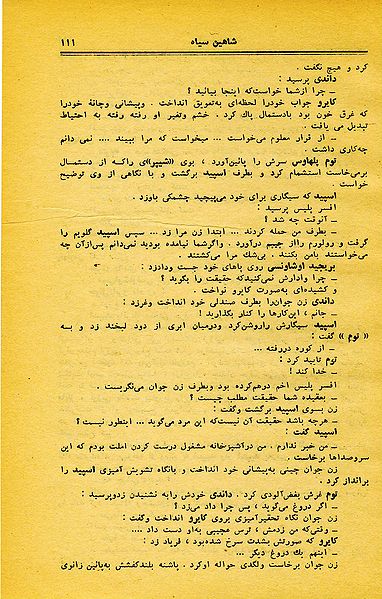 شاهین سیاه
۱۱۱
کرد و هیچ نگفت .
داندی پرسید :
ـ چرا ازشما خواست که اینجا بیائید ؟
کایرو جواب خودرا لحظه‌ای به‌تعویق انداخت . وپیشانی وچانهٔ خودرا
که غرق خون بود بادستمال پاك کرد . خشم وتغیر او رفته رفته به احتیاط
تبدیل می یافت .
ـ از قرار معلوم می‌خواست ... میخواست که مرا ببیند .... نمی دانم
چه‌کاری داشت .
توم پلهاوس سرش را پائین‌آورد ، بوی «شیپر»ی راکه از دستمال
برمی‌خاست استشمام کرد و بطرف اسپید برگشت و با نگاهی از وی توضیح
خواست .
اسپید که سیگاری برای خود می‌پیچید چشمکی باوزد .
افسر پلیس پرسید :
ـ آنوقت چه شد ؟
ـ بطرف من حمله کردند ... ابتدا زن مرا زد ... سپس اسپید گلویم را
گرفت و رولورم رااز جیبم درآورد . واگرشما نیامده بودید نمی‌دانم پس‌ازآن چه
می‌خواستند بامن بکنند . بی‌شك مرا می‌کشتند .
بریجید اوشاونسی روی پاهای خود جست ودادزد :
ـ چرا وادارش نمی‌کنیدکه حقیقت را بگوید ؟
و کشیده‌ای به‌صورت کایرو نواخت .
داندی زن جوان‌را بطرف صندلی خود انداخت وغرزد :
ـ جانم ، این‌کارها را کنار بگذارید !
اسپید سیگارش راروشن‌کرد ودرمیان ابری از دود لبخند زد و بـه
«توم» گفت :
ـ از کوره دررفته ...
توم تایید کرد :
ـ خدا کند !
افسر پلیس اخم درهم‌کرده بود وبطرف زن جوان می‌نگریست .
ـ بعقیده شما حقیقت مطلب چیست ؟
زن بسوی اسپید برگشت وگفت :
ـ هرچه باشد حقیقت آن نیست‌که این مرد می‌گوید ... اینطور نیست ؟
اسپید گفت :
ـ من خبر ندارم . من درآشپزخانه مشغول درست کردن املت بودم که این
سروصداها برخاست .
زن جوان چینی به‌پیشانی خود انداخت و بانگاه تشویش آمیزی اسپید را
برانداز کرد .
توم غرش بغض‌آلودی کرد . داندی خودش رابه نشنیدن زدوپرسید :
ـ اگر دروغ می‌گوید ، پس چرا داد می‌زد ؟
زن جوان نگاه تحقیرآمیزی بروی کایرو انداخت وگفت :
ـ وقتی‌که من زدمش ، ترس عجیبی به‌او دست داد ....
کایرو که صورتش بشدت سرخ شده‌بود ، فریاد زد :
ـ اینهم یك دروغ دیگر ...
زن جوان برخاست ولگدی حواله اوکرد . پاشنه بلندکفشش به‌پائین زانوی